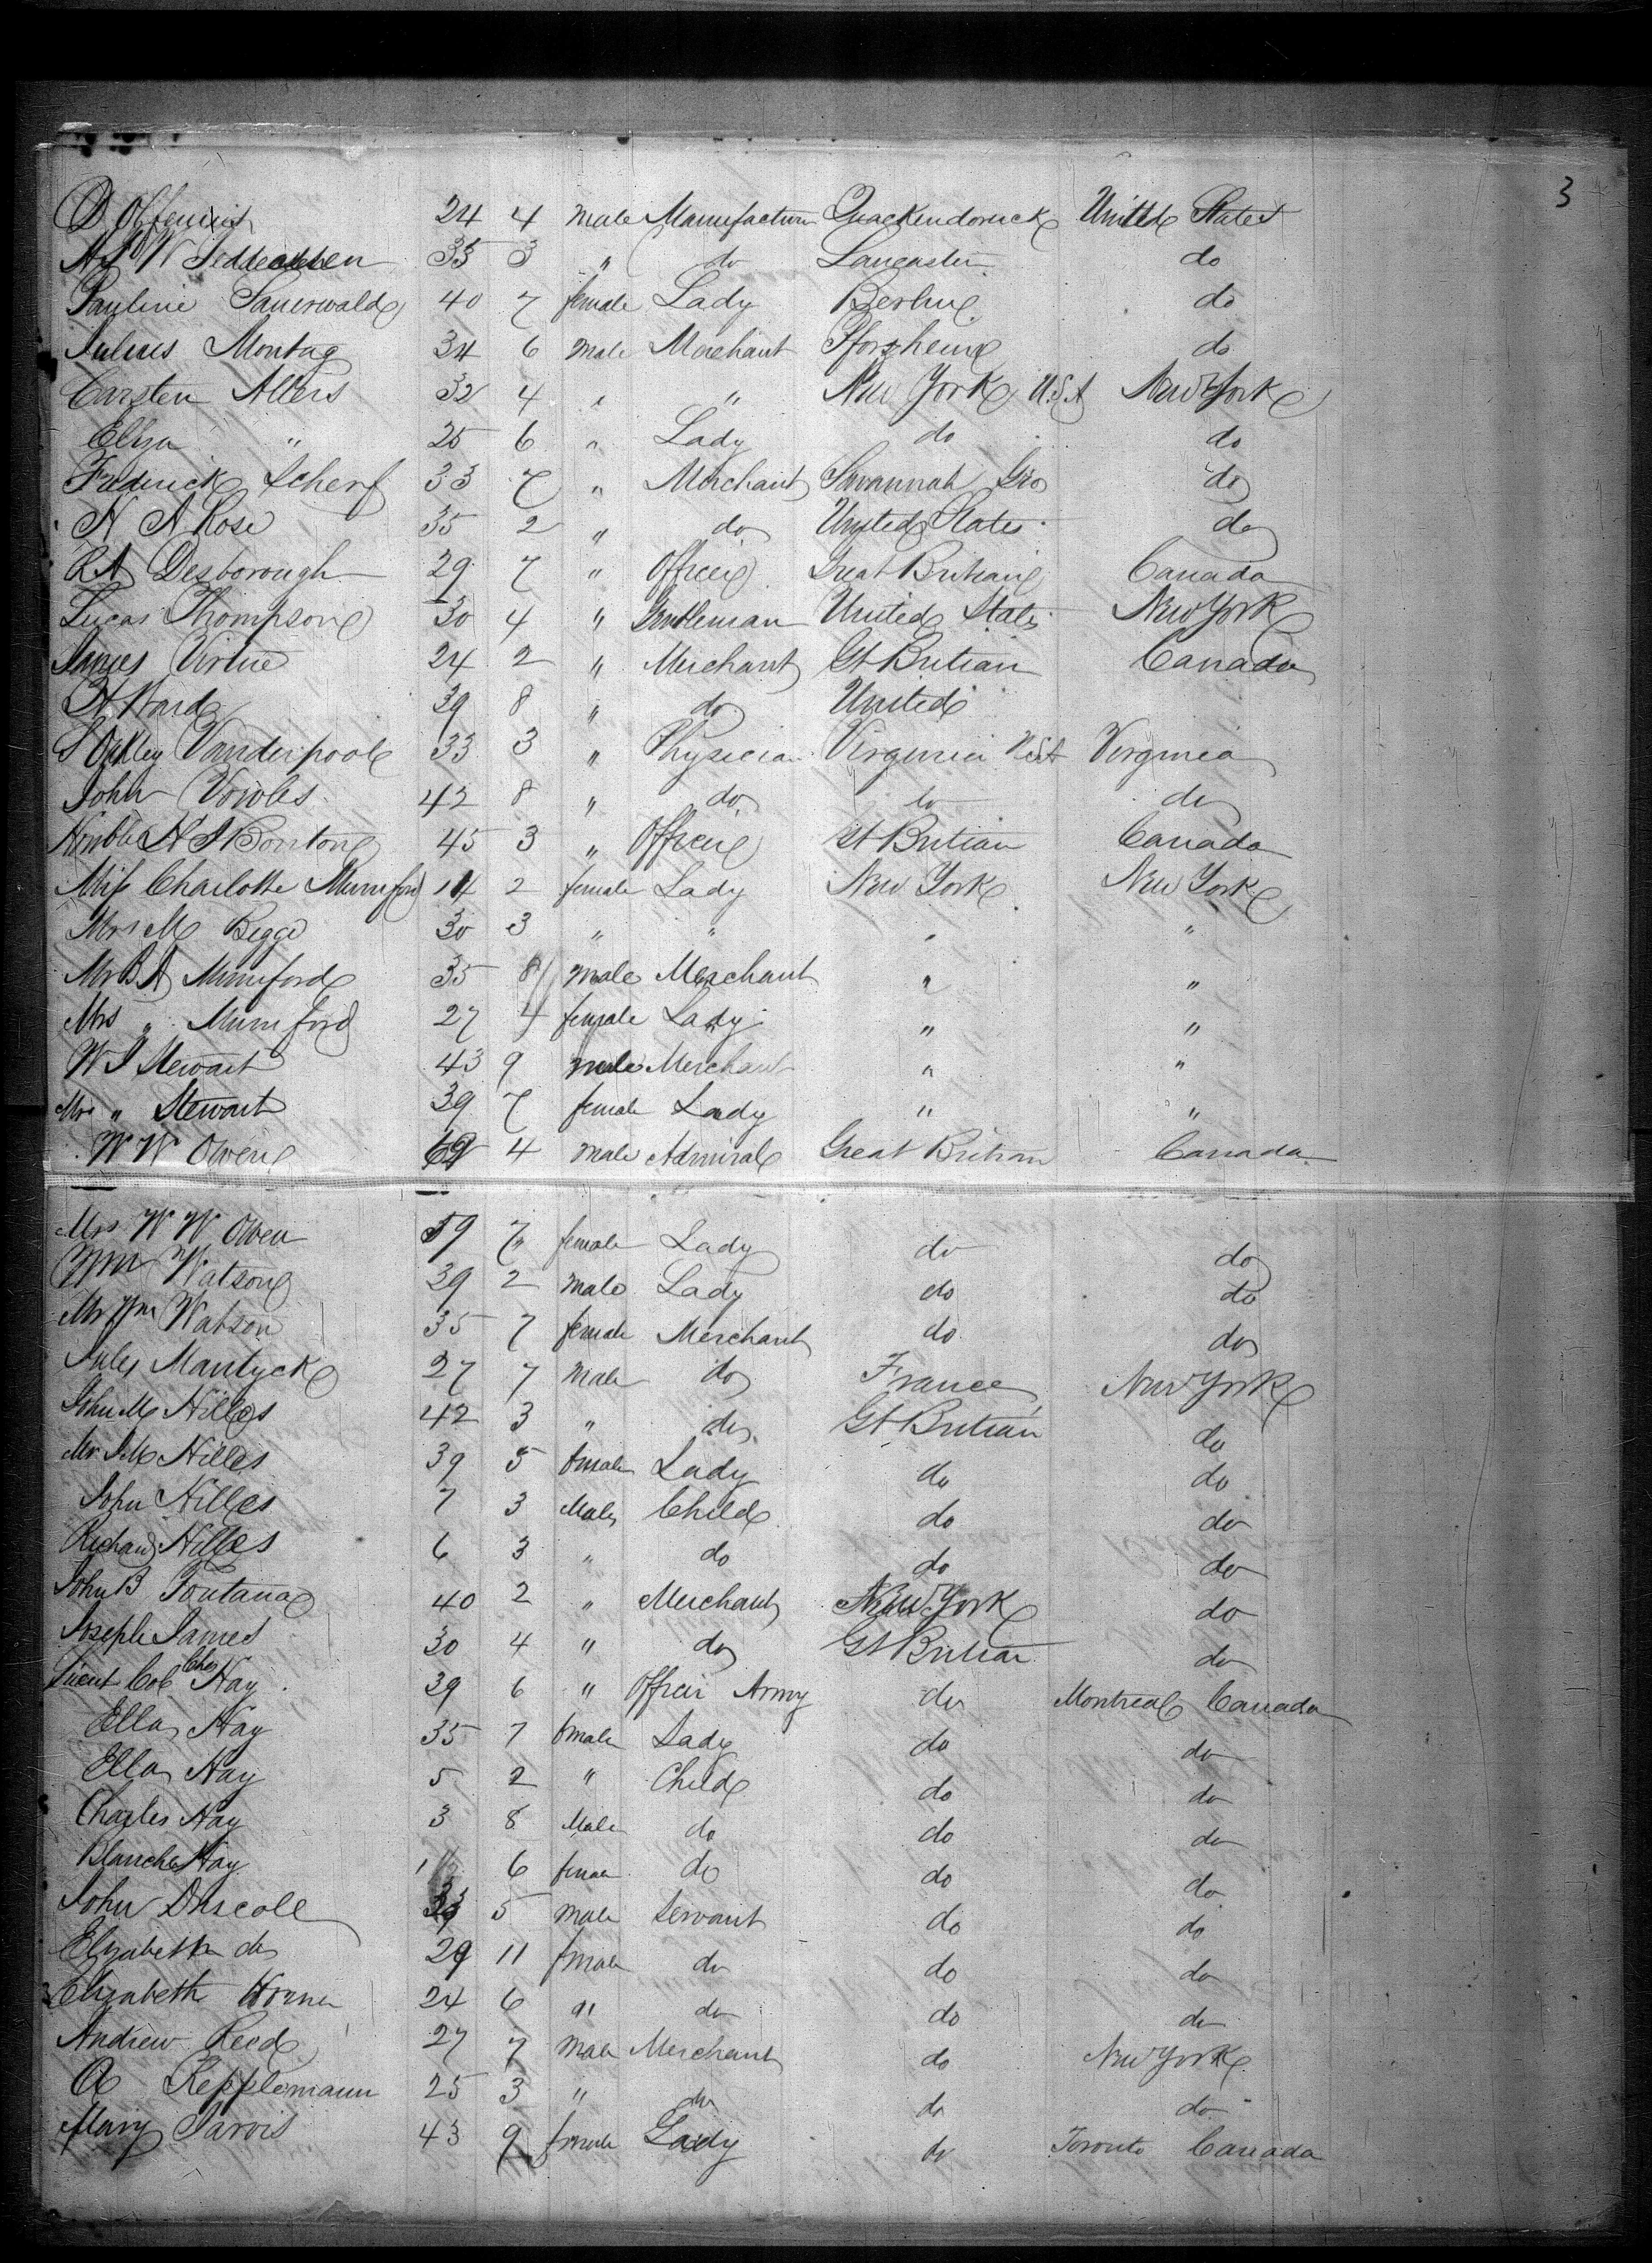 3
24 4 male Manufacturer Quackenbruck United States
35 3 " do Lancaster do
Pauline Sauerwald 40 7 female Lady Berlin do
Julius Montag 34 6 male Merchant Pforzheim do
Carsten Allers 32 4 " " New York U.S.A New York
Eliza " 25 6 " Lady do do
Frederick Scherf 33 7 " Merchant Savannah Geo do
H A Rose 35 2 " do United States do
RA Desborough 29 7 " Officer Great Britian Canada
Lucas Thompson 30 4 " Gentleman United States New York
James Virtue 24 2 " Merchant Gt Britian Canada
H Ward 39 8 " do United
S Oakley Vanderpool 33 3 " Physician Virginia USA Virginia
John Vowles 42 8 " do do do
45 3 " Officer Gt Britian Canada
Miss Charlotte Mumford 14 2 female Lady New York New York
Mrs M Begge 30 3 " " " "
Mr B A Mumford 35 8 male Merchant " "
Mrs " Mumford 27 4 female Lady " "
W J Stewart 43 9 male Merchant " "
Mrs " Stewart 39 7 female Lady " "
W W Owen 4 male Admiral Great Britian Canada
Mrs W W Owen 59 7 female Lady do do
Wm Watson 39 2 male Lady do do
Mr Wm Watson 35 7 female Merchant do do
Jules Mantyck 27 7 male do France New York
John M Nilles 42 3 " do Gt Britian do
Mr J M Nilles 39 5 female Lady do do
John Nilles 7 3 Male Child do do
Richard Nilles 6 3 " do do do
John B Fontana 40 2 " Merchant New York do
Joseph James 30 4 " do Gt Britian do
Lieut Col Chas Hay 39 6 " Officer Army do Montreal Canada
Ella Hay 35 7 female Lady do do
Ella Hay 5 2 " Child do do
Charles Hay 3 8 Male do do do
Blanche Hay 1 6 female do do do
John Driscole 33 5 male Servant do do
Elizabeth do 29 11 female do do do
Elizabeth Horner 24 6 " do do do
Andrew Reed 27 7 male Merchant do New York
A Repplemann 25 3 " do do do
Mary Jarvis 43 9 female Lady do Toronto Canada